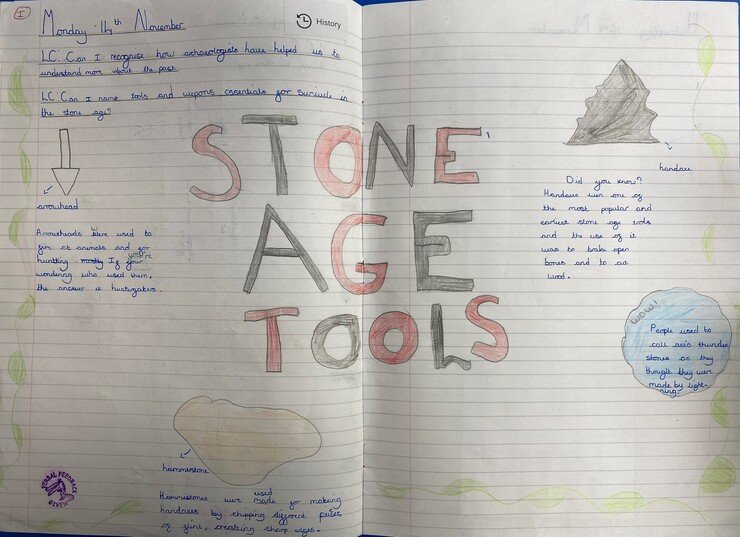 I
Monday 11th November
History
LC: Can I recognise how archaeologists have helped us to
understand more about the past
LC: Can I name tools and wepons essentials for survivle in
the stone age?
STONE
AGE
TOOLS
arrowhead
Arrowheads were used to
fire at animals and for
huntting. mostly If your you're
wondering who used them,
the answer is
hammerstone
Hammerstones were used made for making
handaxes by chipping different peices
of flint, creating sharp edges.
VERBAL FEEDBACK
GIVEN
handaxe
Did you know?
Handaxes were one of
the most popular and
earliest stone age tools
and the use of it
was to brake open
bones and to cut
wood.
WOW!
People used to
call axes thunder
stones as they
thought they were
made by light-
ning.